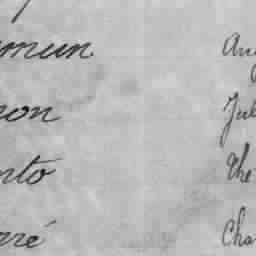 mmun Aug
non Jul
nto The
rré Cha